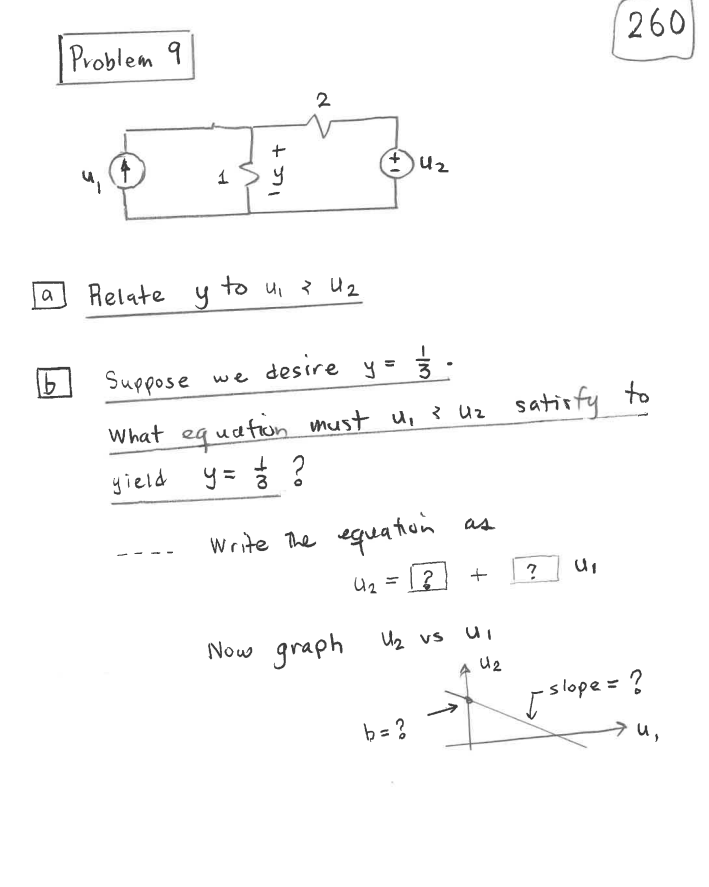 260
Problem 9
2
u1 1 + y − + − u2
a Relate y to u1 & u2
b Suppose we desire y = 1/3 .
What equation must u1 & u2 satisfy to
yield y = 1/3 ?
---- Write the equation as
u2 = ? + ? u1
Now graph u2 vs u1
u2
slope = ?
b = ?
u1